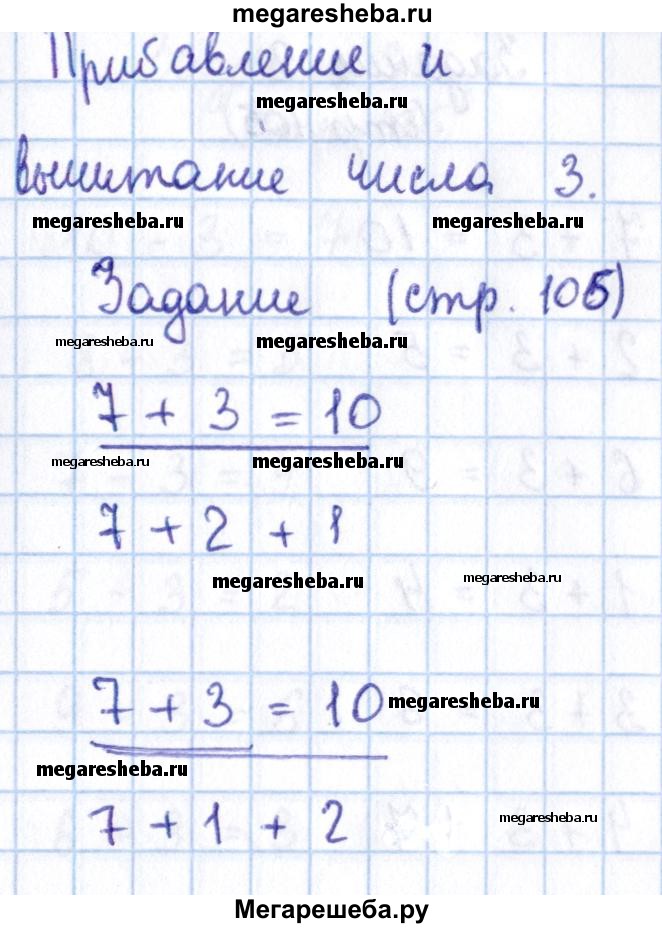 megaresheba.ru
Прибавление и
megaresheba.ru
вычитание числа 3.
megaresheba.ru megaresheba.ru
Задание (стр. 105)
megaresheba.ru megaresheba.ru
7 + 3 = 10
megaresheba.ru megaresheba.ru
7 + 2 + 1
megaresheba.ru megaresheba.ru
7 + 3 = 10 megaresheba.ru
megaresheba.ru
7 + 1 + 2 megaresheba.ru
Мегарешеба.ру